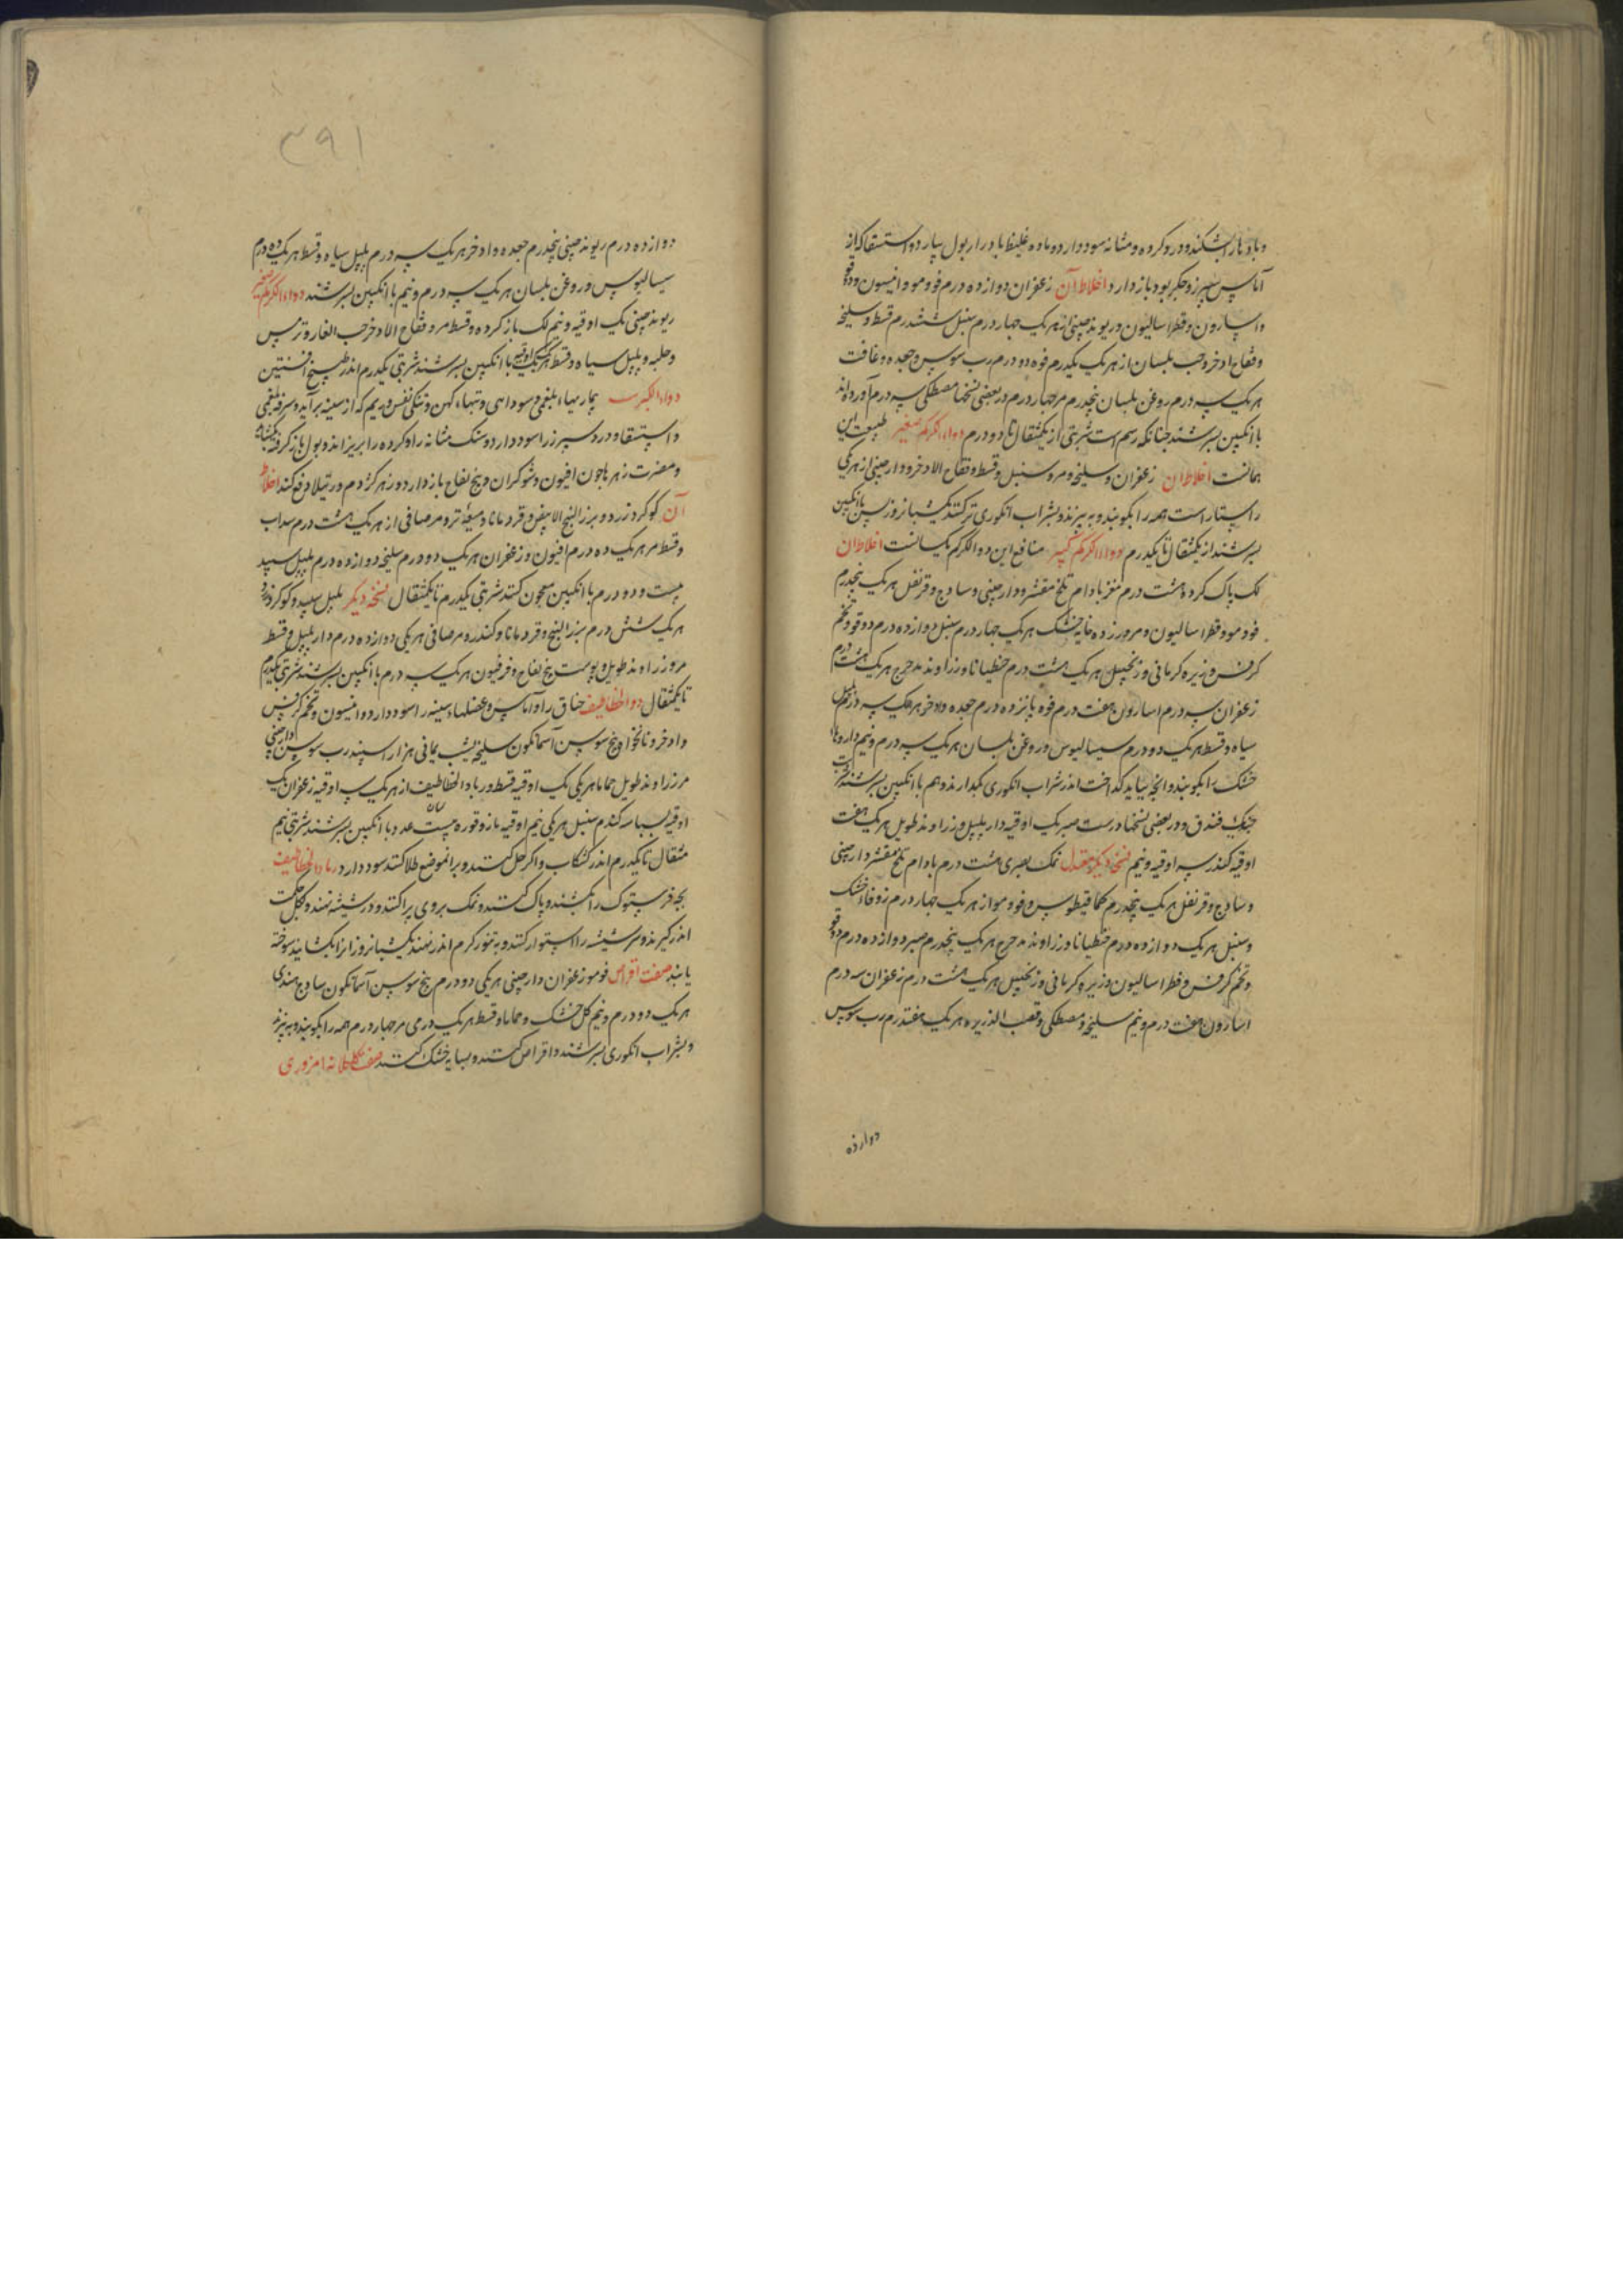 و بادها را بشکند و درد کرده و مثانه سود دارد و ماده غلیظ با درار بول بیارد و استسقا که از
آماس سپرز و جگر بود باز دارد اخلاط آن زعفران دوازده درم فو و مو و انیسون و دوقو
و اسارون و فطراسالیون و ریوند چینی از هر یک چهار درم سنبل ششدرم قسط و سلیخه
و فقاح اذخر و حب بلسان از هر یک یکدرم فوه دو درم رب سوس و جعده و غافت
هر یک سه درم روغن بلسان پنجدرم مر چهار درم در بعضی نسختها مصطکی سه درم آورده‌اند
با انکبین بسرشند چنانکه رسم است شربتی از یکثقال تا دو درم دواء الکرکم صغیر طبیعت این
همانست اخلاط آن زعفران و سلیخه و مر و سنبل و قسط و فقاح الاذخر و دارچینی از هر یکی
راستا راست همه را بکوبند و ببیزند و بشراب انکوری تر کنند یکشبانروز پس با انکبین
بسرشند از یکثقال تا یکدرم دواء الکرکم کبیر منافع این دواالکرکم یکسانست اخلاط آن
لک پاک کرده هشت درم مغز بادام تلخ مقشر و دارچینی و ساذج و قرنفل هر یک پنجدرم
فو و مو و فطراسالیون و مر و زوفا خشک هر یک چهار درم سنبل دوازده درم دوقو و تخم
کرفس و زیره کرمانی و زنجبیل هر یک هشت درم جنطیانا و زراوند مدحرج هر یک هشت درم
زعفران سه درم اسارون هفت درم فوه پانزده درم جعده و اذخر هر یک سه درم پلپل
سیاه و قسط هر یک دو درم سیسالیوس و روغن بلسان هر یک سه درم و نیم داروها
خشک را بکوبند و انچه بباید کداخت اندر شراب انکوری بکدازند و بهم با انکبین بسرشند شربت
چندیک فندق و در بعضی نسختها درست صبر یک اوقیه دارپلپل و زراوند طویل هر یک هفت
اوقیه کندر سه اوقیه و نیم نسخه دیکر معتدل نمک بصری هشت درم بادام تلخ مقشر دارچینی
و ساذج و قرنفل هر یک پنجدرم کمافیطوس و فو و مو از هر یک چهار درم زوفاء خشک
و سنبل هر یک دوازده درم جنطیانا و زراوند مدحرج هر یک پنجدرم صبر دوازده درم دوقو
و تخم کرفس و فطراسالیون و زیره کرمانی و زنجبیل هر یک هشت درم زعفران سه درم
اسارون هفت درم و نیم سلیخه و مصطکی و قصب الذریره هر یک هفتدرم رب سوس
دوازده
۳۹۱
دوازده درم ریوند چینی پنجدرم جعده و اذخر هر یک سه درم پلپل سیاه و قسط هر یک ده درم
سیسالیوس و روغن بلسان هر یک سه درم و نیم با انکبین بسرشند دواء الکرکم صغیر
ریوند چینی یک اوقیه و نیم لک باز کرده و قسط مر و فقاح الاذخر حب الغار و ترمس
و حلبه و پلپل سیاه و قسط هر یک اوقیه با انکبین بسرشند شربتی یکدرم اندر طبیخ افسنتین
دواء الکبریت بیماریهاء بلغمی و سوداهی و تبهاء کهن و تنکی نفس و ریم که از سینه برآید و سرفه بلغمی
و استسقا و درد سپرز را سود دارد و سنک مثانه را و کرده را بریزاند و بول باز کرفته بکشاید
و مضرت زهرها چون افیون و شوکران و بیخ لفاح باز دارد و زهر کژدم و رتیلا دفع کند اخلاط
آن کوکرد زرد و بزر البنج الابیض و قردمانا و میعه تر و مر صافی از هر یک هشت درم سداب
و قسط مر هر یک ده درم افیون و زعفران هر یک دو درم سلیخه دوازده درم پلپل سپید
بیست و دو درم با انکبین معجون کنند شربتی یکدرم تا یکثقال نسخه دیکر پلپل سپید و کوکرد زرد
هر یک شش درم بزر البنج و قردمانا و کندر و مر صافی هر یکی دوازده درم دارپلپل و قسط
مر و زراوند طویل و پوست بیخ لفاح و فرفیون هر یک سه درم با انکبین بسرشند شربتی یکدرم
تا یکثقال دواء الخطاطیف خناق را و آماس و عضلهاء سینه را سود دارد و انیسون و تخم کرفس
و اذخر و نانخواه و بیخ سوسن آسمانکون سلیخه شب یمانی هزار اسپند رب سوس دارچینی
مر زراوند طویل حماما هر یکی یک اوقیه قسط و رماد الخطاطیف از هر یک سه اوقیه زعفران یک
اوقیه بسباسه کندم سنبل هر یکی نیم اوقیه مازو قوره بیست عدد با انکبین بسرشند شربتی نیم
مثقال تا یکدرم اندر کشکاب و اکر حل کنند و برانموضع طلا کنند سود دارد رماد الخطاطیف
بچه فرستوک را بکشند و پاک کنند و نمک بروی پراکنند و در شیشه نهند و کل حکمت
اندر کیرند و سر شیشه را استوار کنند و به تنور کرم اندر نهند یکشبانروز انرا بکشایند سوخته
یابند صفت اقراص فو مو زعفران دارچینی هر یکی دو درم بیخ سوسن آسمانکون ساذج هندی
هر یک دو درم و نیم کل خشک و حماما و قسط هر یک درمی مر چهار درم همه را بکوبند و ببیزند
و بشراب انکوری بسرشند و اقراص کنند و بسایه خشک کنند صفت کلکلانه امروزی